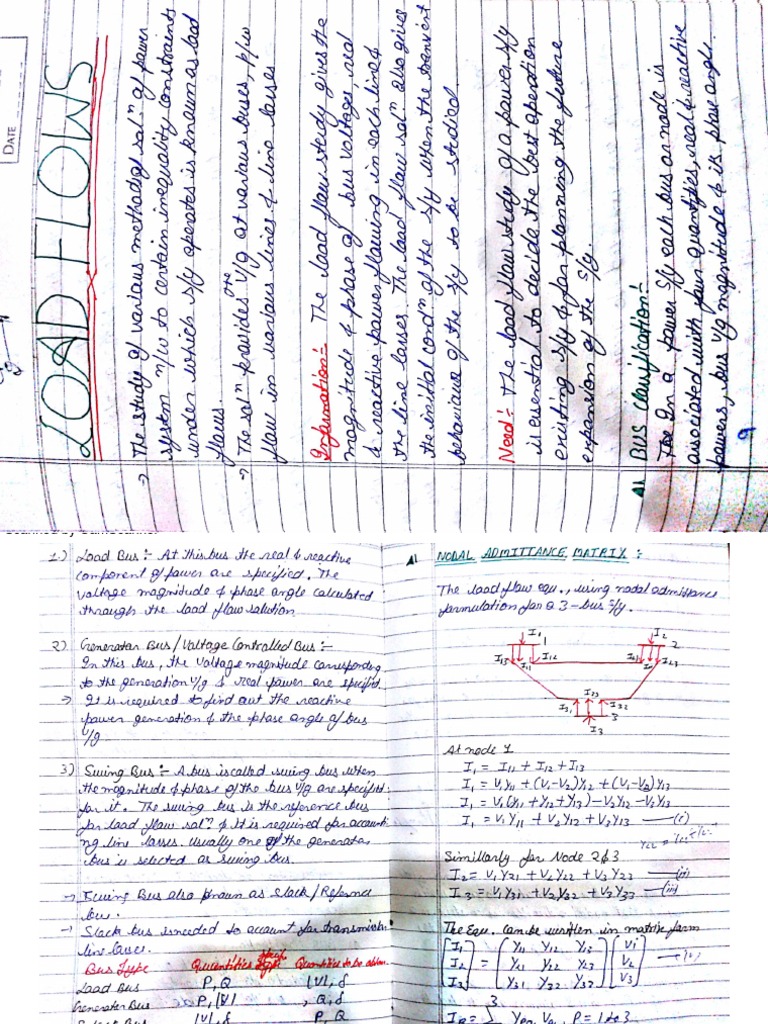 DATE
LOAD FLOWS
→ The study of various methods of solⁿ of power
system n/w to certain inequality constraints
under which s/y operates is known as load
flows.
→ The solⁿ provides the V/g at various buses, p/w
flow in various lines & line losses
Information:- The load flow study gives the
magnitude & phase of bus voltages, real
& reactive power flowing in each line &
the line losses. The load flow solⁿ also gives
the initial condⁿ of the s/y when the transient
behaviour of the s/y to be studied.
Need:- The load flow study of a power s/y
is essential to decide the best operation
existing s/y & for planning the future
expansion of the s/y.
BUS Classification:-
In a power s/y each bus or node is
associated with four quantities, real & reactive
powers, bus v/g magnitude & its phase angle.
1.) Load Bus:- At this bus the real & reactive
component of power are specified. The
voltage magnitude & phase angle calculated
through the load flow solution
2) Generator Bus/Voltage Controlled Bus:-
In this bus, the voltage magnitude corresponding
to the generation v/g & real power are specified.
→ It is required to find out the reactive
power generation & the phase angle of bus
v/g
3) Swing Bus:- A bus is called swing bus when
the magnitude & phase of the bus v/g are specified
for it. The swing bus is the reference bus
for load flow solⁿ & it is required for accounti
ng line losses. Usually one of the generator
bus is selected as swing bus.
→ Swing Bus also known as Slack/Reference
bus.
→ Slack bus is needed to account for transmission
line losses.
Bus Type Quantities Quantities to be obtain.
Load Bus P, Q |V|, δ
Generator Bus P, |V| Q, δ
Slack Bus |V|, δ P, Q
NODAL ADMITTANCE MATRIX :
The load flow equ., using nodal admittance
formulation for a 3-bus s/y.
I1 1 I2 2
I13 I11 I12 I21 I22 I23
I33
I31 I32
3
I3
At node 1
I1 = I11 + I12 + I13
I1 = V1y11 + (V1-V2)y12 + (V1-V3)y13
I1 = V1(y11 + y12 + y13) - V2y12 - V3y13
I1 = V1Y11 + V2Y12 + V3Y13 —(i)
Similarly for Node 2 & 3
I2 = V1Y21 + V2Y22 + V3Y23 —(ii)
I3 = V1Y31 + V2Y32 + V3Y33 —(iii)
The Equ. can be written in matrix form
[I1] [Y11 Y12 Y13] [V1]
[I2] = [Y21 Y22 Y23] [V2]
[I3] [Y31 Y32 Y32] [V3]
3